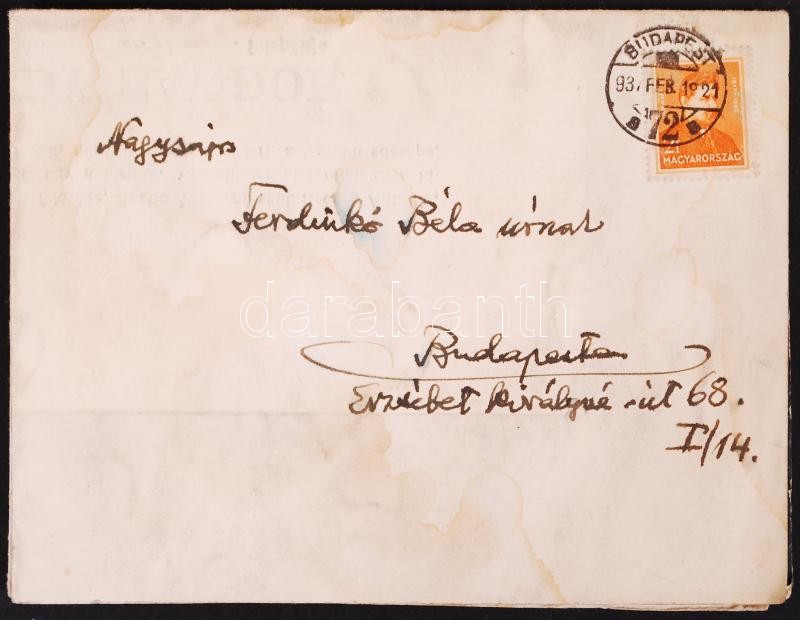 BUDAPEST
937 FEB. 19 21
B 72 B
MAGYARORSZÁG
Nagyságos
Ferdinkó Béla úrnak
darabanth
Budapesten
Erzsébet királyné-út 68.
I/14.